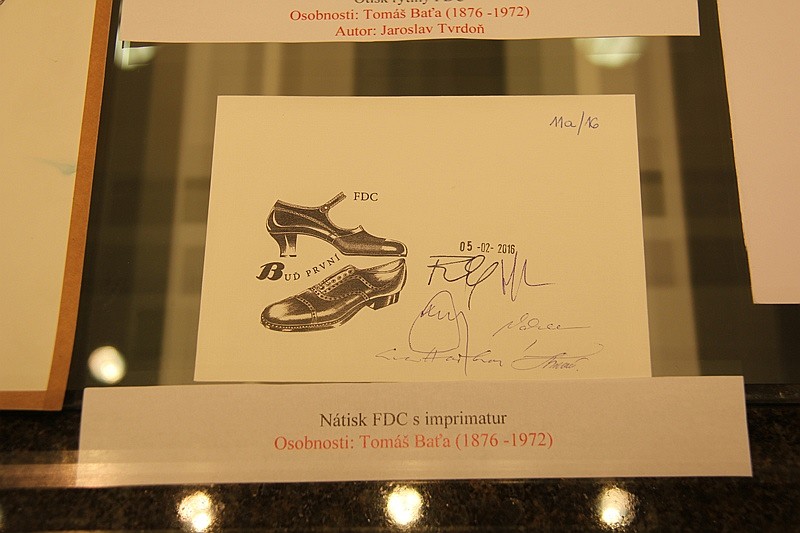 Otisk rytiny FDC
Osobnosti: Tomáš Baťa (1876 -1972)
Autor: Jaroslav Tvrdoň
Ma/16
FDC
BUĎ PRVNÍ
05 -02- 2016
Nátisk FDC s imprimatur
Osobnosti: Tomáš Baťa (1876 -1972)